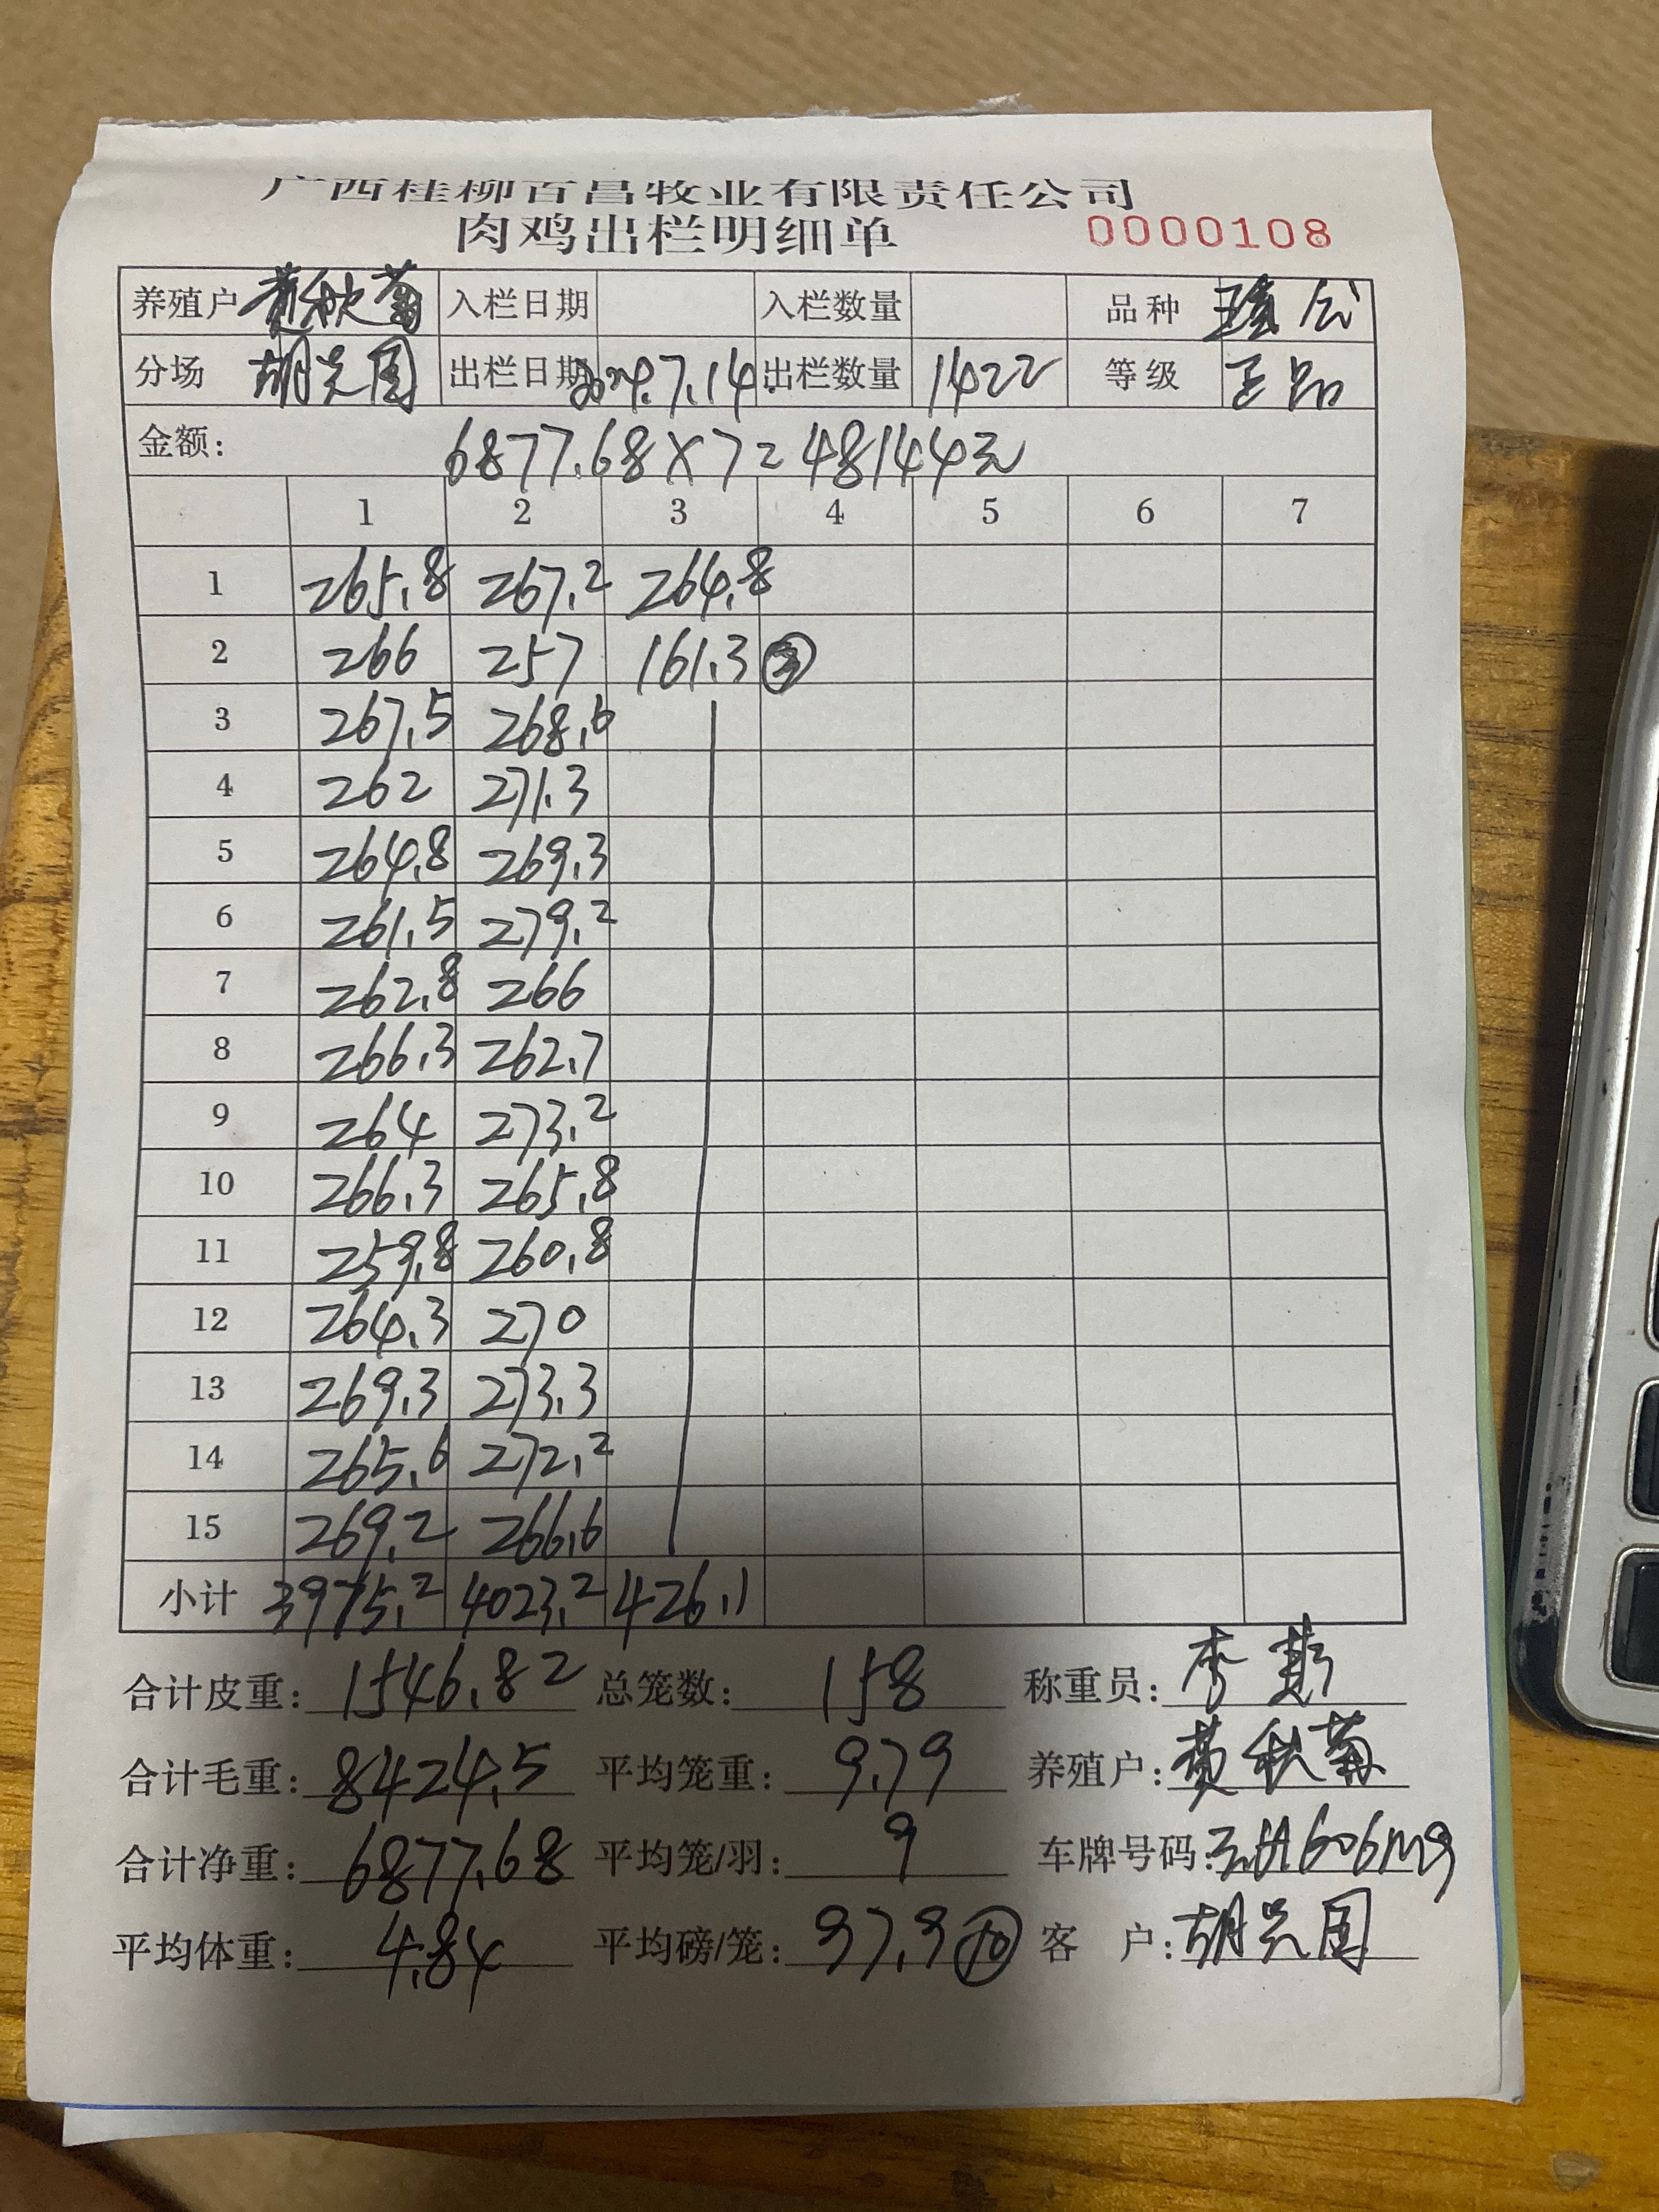 广西桂柳百昌牧业有限责任公司
肉鸡出栏明细单 0000108
养殖户 黄秋菊 入栏日期 入栏数量 品种
分场 出栏日期 2024.7.14. 出栏数量 1422 等级 正品
金额: 6877.68×7=48144元
1 2 3 4 5 6 7
1 265.8 267.2 264.8
2 266 257 161.3 ③
3 267.5 268.6
4 262 271.3
5 264.8 269.3
6 261.5 279.2
7 262.8 266
8 266.3 262.7
9 264 273.2
10 266.3 265.8
11 259.8 260.8
12 264.3 270
13 269.3 273.3
14 265.6 272.2
15 269.2 266.6
小计 3975.2 4023.2 426.1
合计皮重: 1546.82 总笼数: 158 称重员: 李
合计毛重: 8424.5 平均笼重: 9.79 养殖户: 黄秋菊
合计净重: 6877.68 平均笼/羽: 9 车牌号码:
平均体重: 4.84 平均磅/笼: 97.9 客 户: